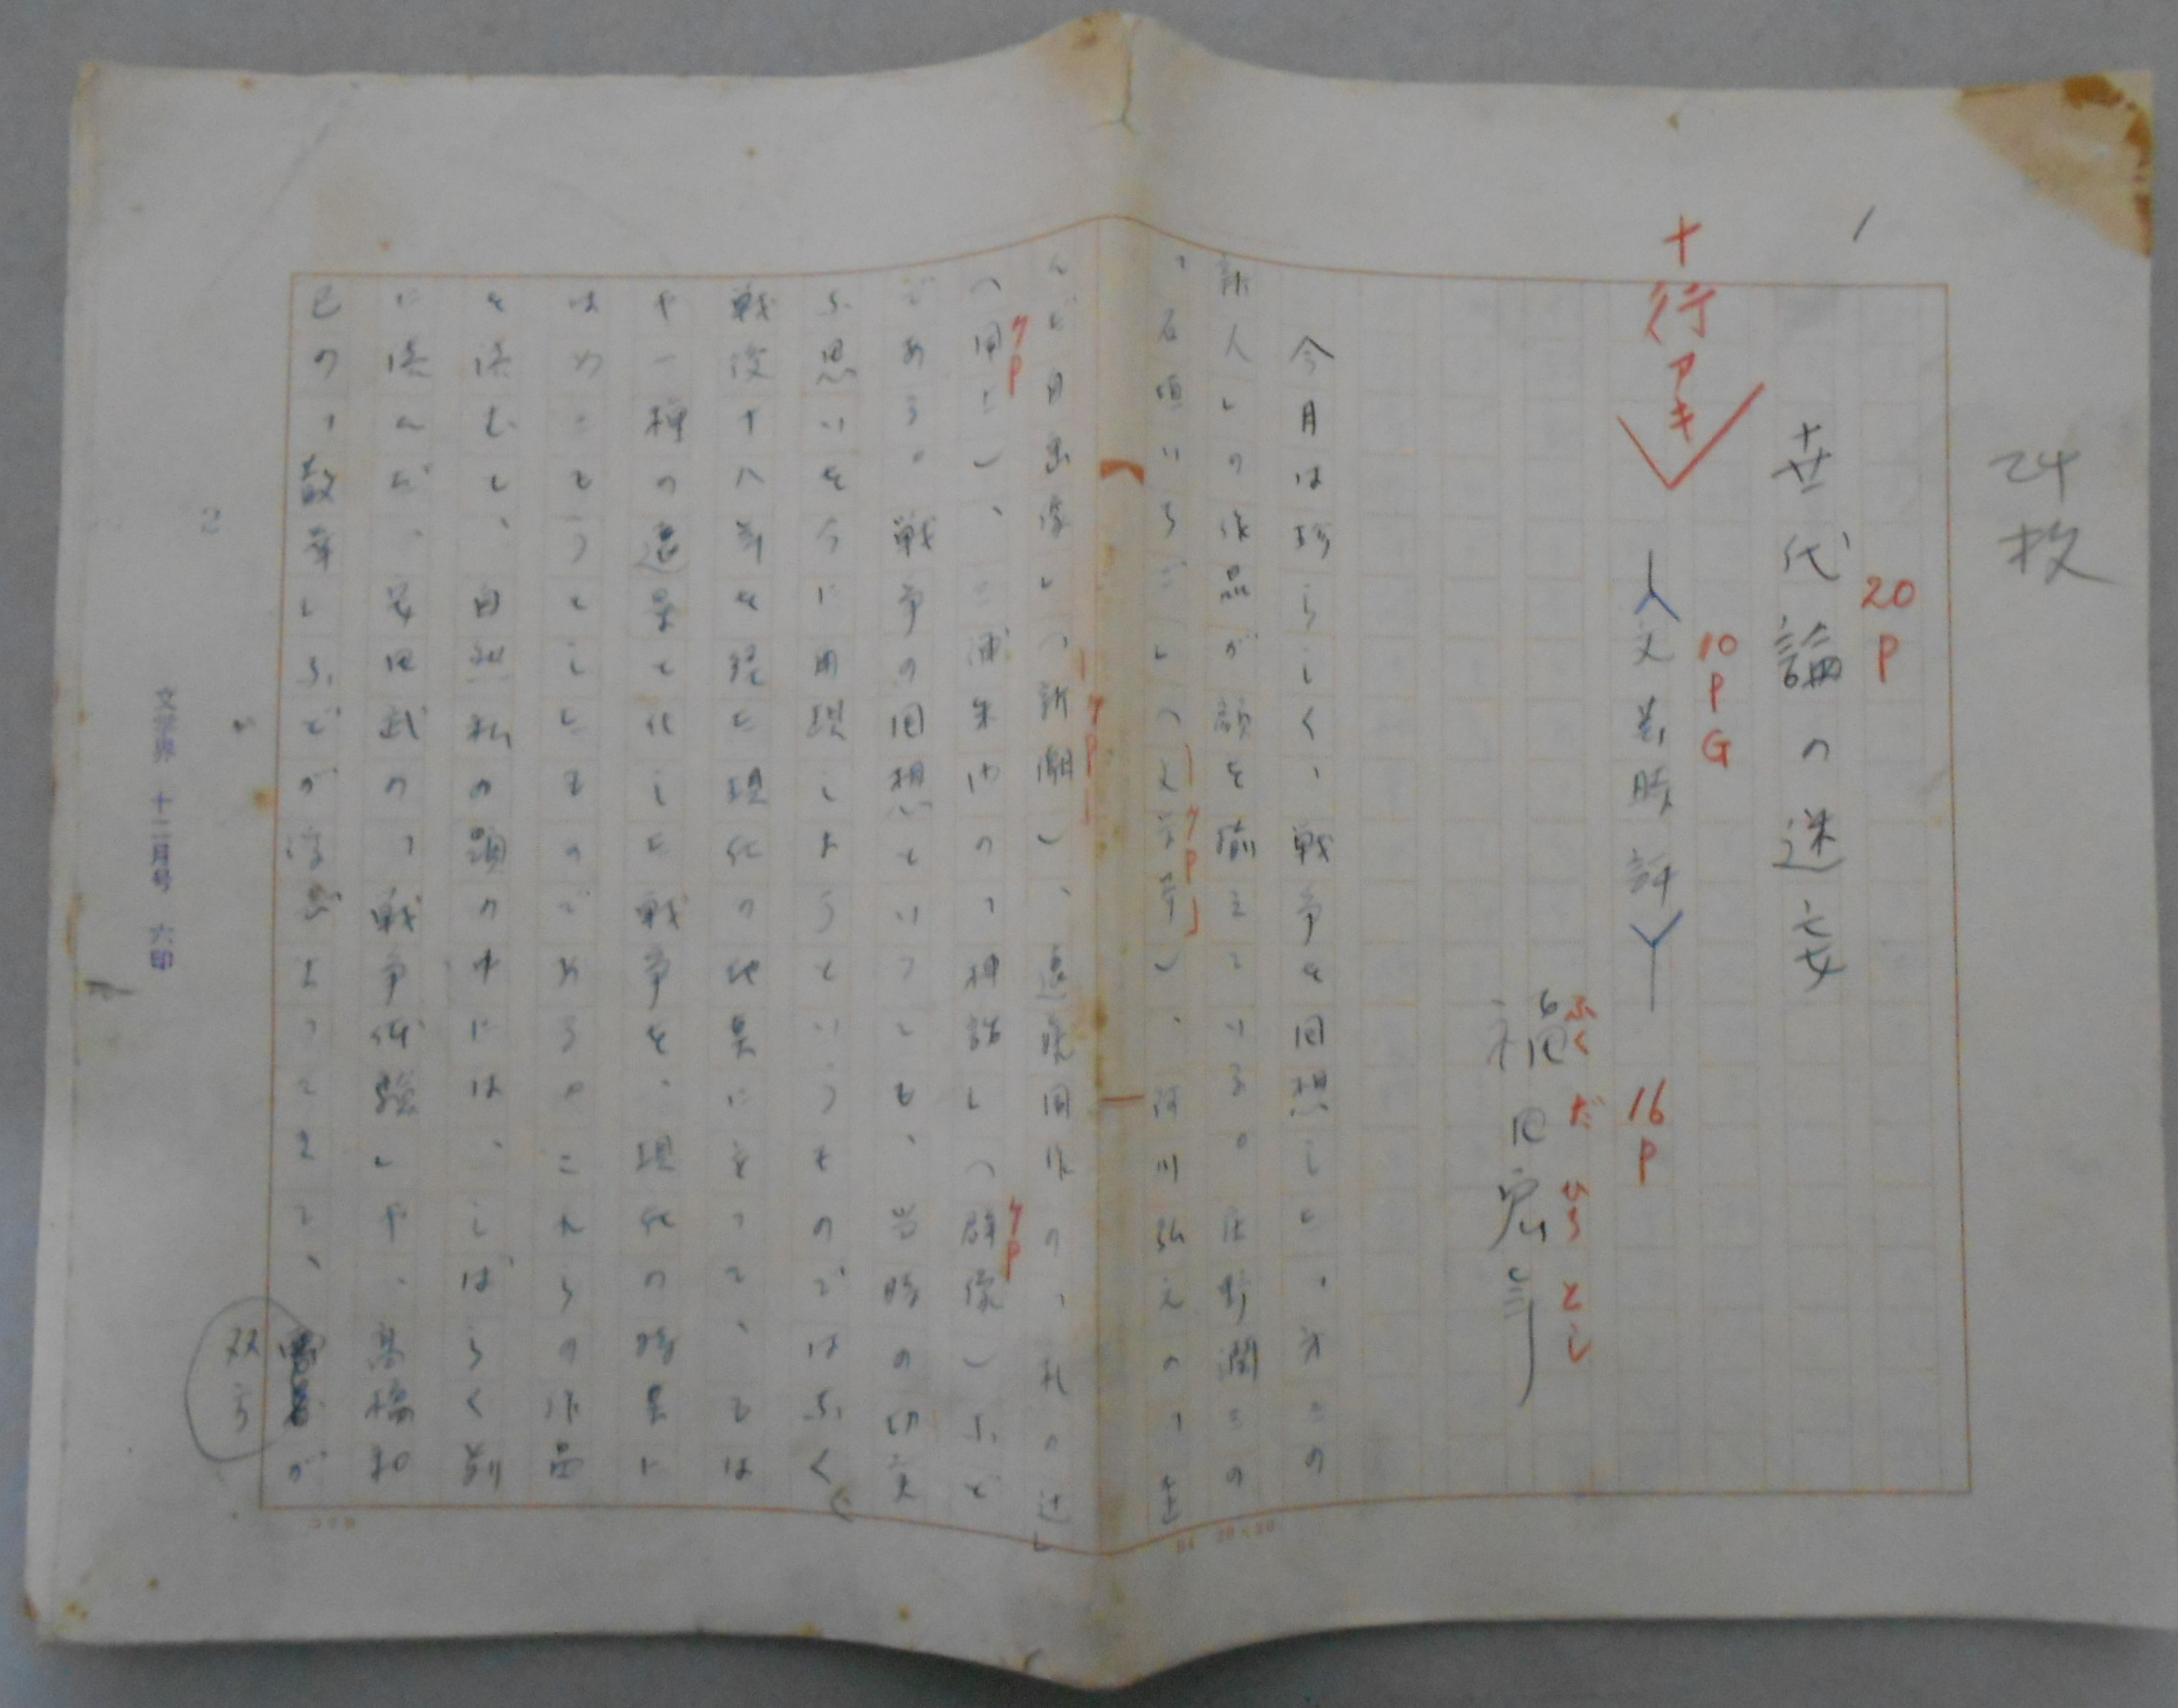 24枚
1
世代論の迷妄
20P
十行アキ
文芸時評
10PG
16P
福田宏年
ふくだ ひろとし
今月は珍らしく、戦争を回想した、第二の
新人」の作品が顔を揃えている。庄野潤三の
「石垣いちご」(文学界)、阿川弘之の「
(新潮)、遠藤周作の「札の辻」
(同上)、三浦朱門の「神話」(群像)など
である。戦争の回想といっても、当時の切実
な思いを今に再現しようというものではなく
戦後十八年を経た現代の地点に立って、もは
や一種の遠景と化した戦争を、現代の時点に
はめこもうとしたものである。これらの作品
を読むと、自然私の頭の中には、しばらく前
に読んだ、安田武の「戦争体験」や、高橋和
巳の「散華」などが浮び上ってきて、双方が
7P
7P
7P
7P
2
文学界 十二月号 六印
20×20